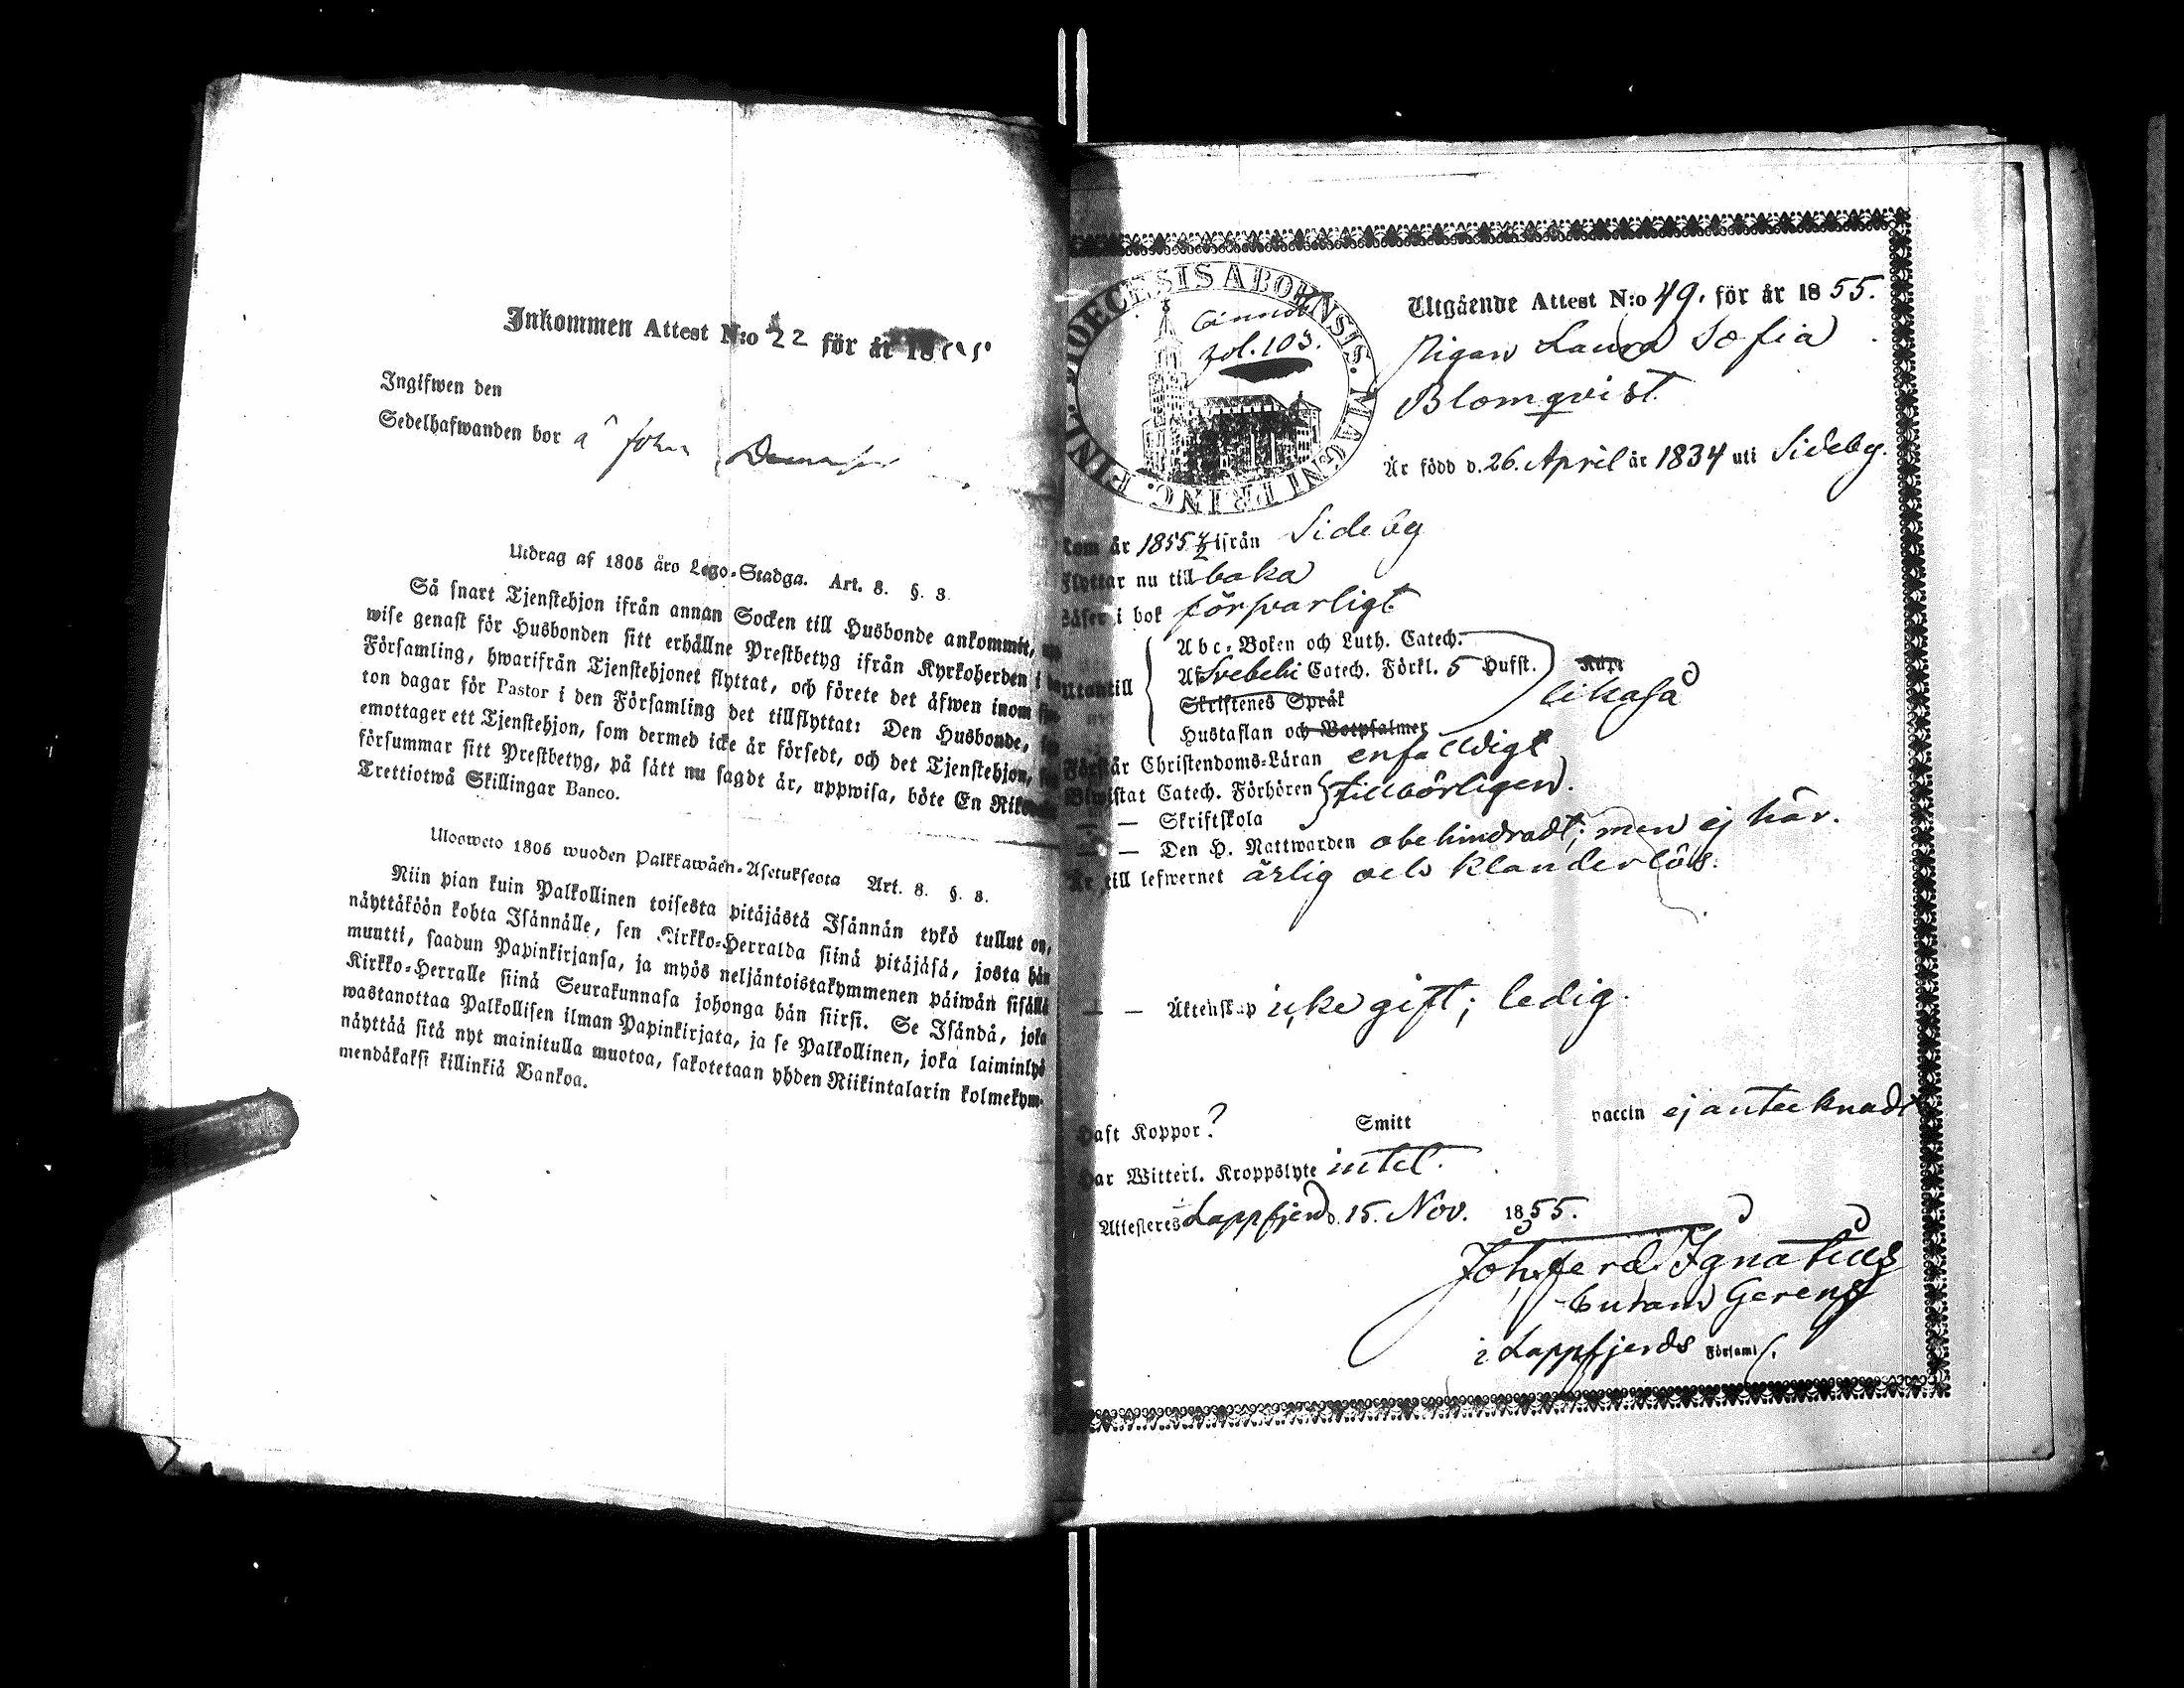 Inkommen Attest N:o 22 för år 18
Ingifwen den
Sedelhafwanden bor å John
Utdrag af 1805 års Lego-Stadga. Art. 8. §. 3.
Så snart Tjenstehjon ifrån annan Socken till Husbonde ankommit, upp-
wise genast för Husbonden sitt erhållne Prestbetyg ifrån Kyrkoherden i
Församling, hwarifrån Tjenstehjonet flyttat, och förete det äfwen inom
ton dagar för Pastor i den Församling det tillflyttat: Den Husbonde,
emottager ett Tjenstehjon, som dermed icke är försedt, och det Tjenstehjon,
försummar sitt Prestbetyg, på sätt nu sagdt är, uppwisa, böte En
Trettiotwå Skillingar Banco.
Ulosweto 1805 wuoden Palkkawäen-Asetuksesta Art. 8. §. 3.
Niin pian kuin Palkollinen toisesta pitäjästä Isännän tykö tullut on,
näyttäköön kohta Isännälle, sen Kirkko-Herralda siinä pitäjäsä, josta hän
muutti, saadun Papinkirjansa, ja myös neljäntoistakymmenen päiwän sisällä
Kirkko-Herralle siinä Seurakunnasa johonga hän siirsi. Se Isändä, joka
wastanottaa Palkollisen ilman Papinkirjata, ja se Palkollinen, joka laiminlyö
näyttää sitä nyt mainitulla muotoa, sakotetaan yhden Riikintalarin kolmekym-
mendäkaksi killinkiä Bankoa.
DIOECESIS ABOENSIS. MAGNI PRINC. FINL.
fol. 103.
Utgående Attest N:o 49. för år 1855.
Pigan Laura Sofia
Blomqvist.
Är född d. 26. April år 1834 uti Sideby.
kom år 1855 ifrån Sideby
Flyttar nu till baka
Läser i bok försvarligt
Utantill
Abc-Boken och Luth. Catech.
Af Svebelii Catech. Förkl. 5 Hufst.
likaså
Skriftenes Språk
Hustaflan och Botpsalmer
Förstår Christendoms-Läran enfaldigt
Biwistat Catech. Förhören tillbörligen.
— — Skriftskola
— — Den H. Nattwarden obehindradt; men ej här.
Är till lefwernet ärlig och klanderlös.
— — Äktenskap icke gift; ledig.
Haft Koppor? Smitt vaccin ej antecknadt
Har Witterl. Kroppslyte intet.
Attesteres Lappfjerd d. 15. Nov. 1855.
Joh. Ferd. Ignatius
Gerens
i Lappfjerds Församl.